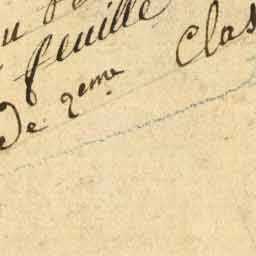 feuille
de 2eme Clas